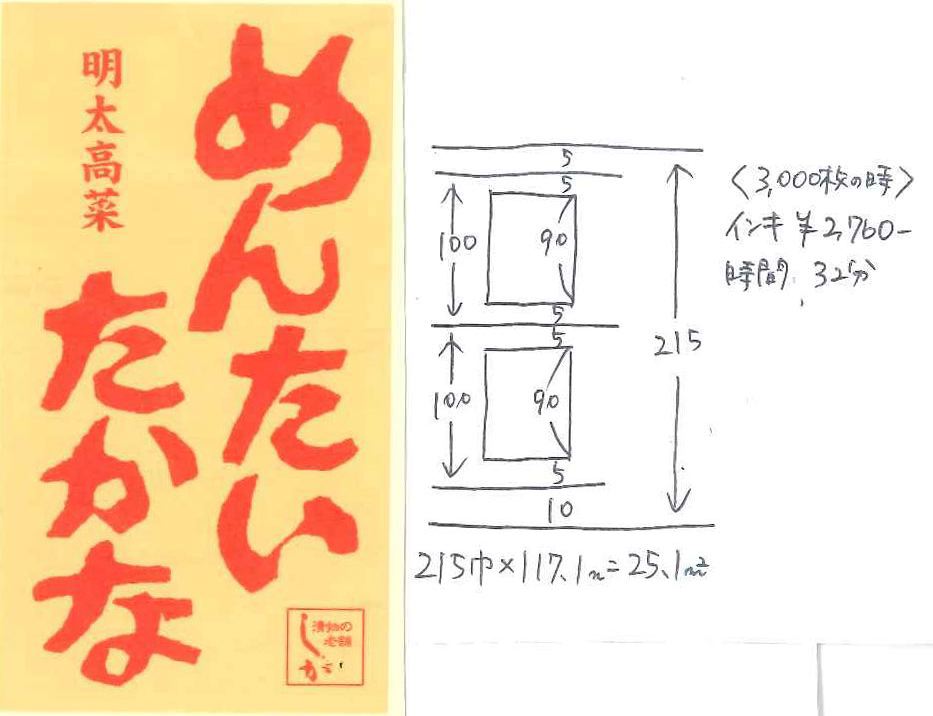 めんたい
たかな
明太高菜
漬物の
老舗
しが
5
5
100
90
5
5
100
90
5
10
215
215巾×117.1m=25.1m²
〈3,000枚の時〉
インキ ¥2,760-
時間 32分